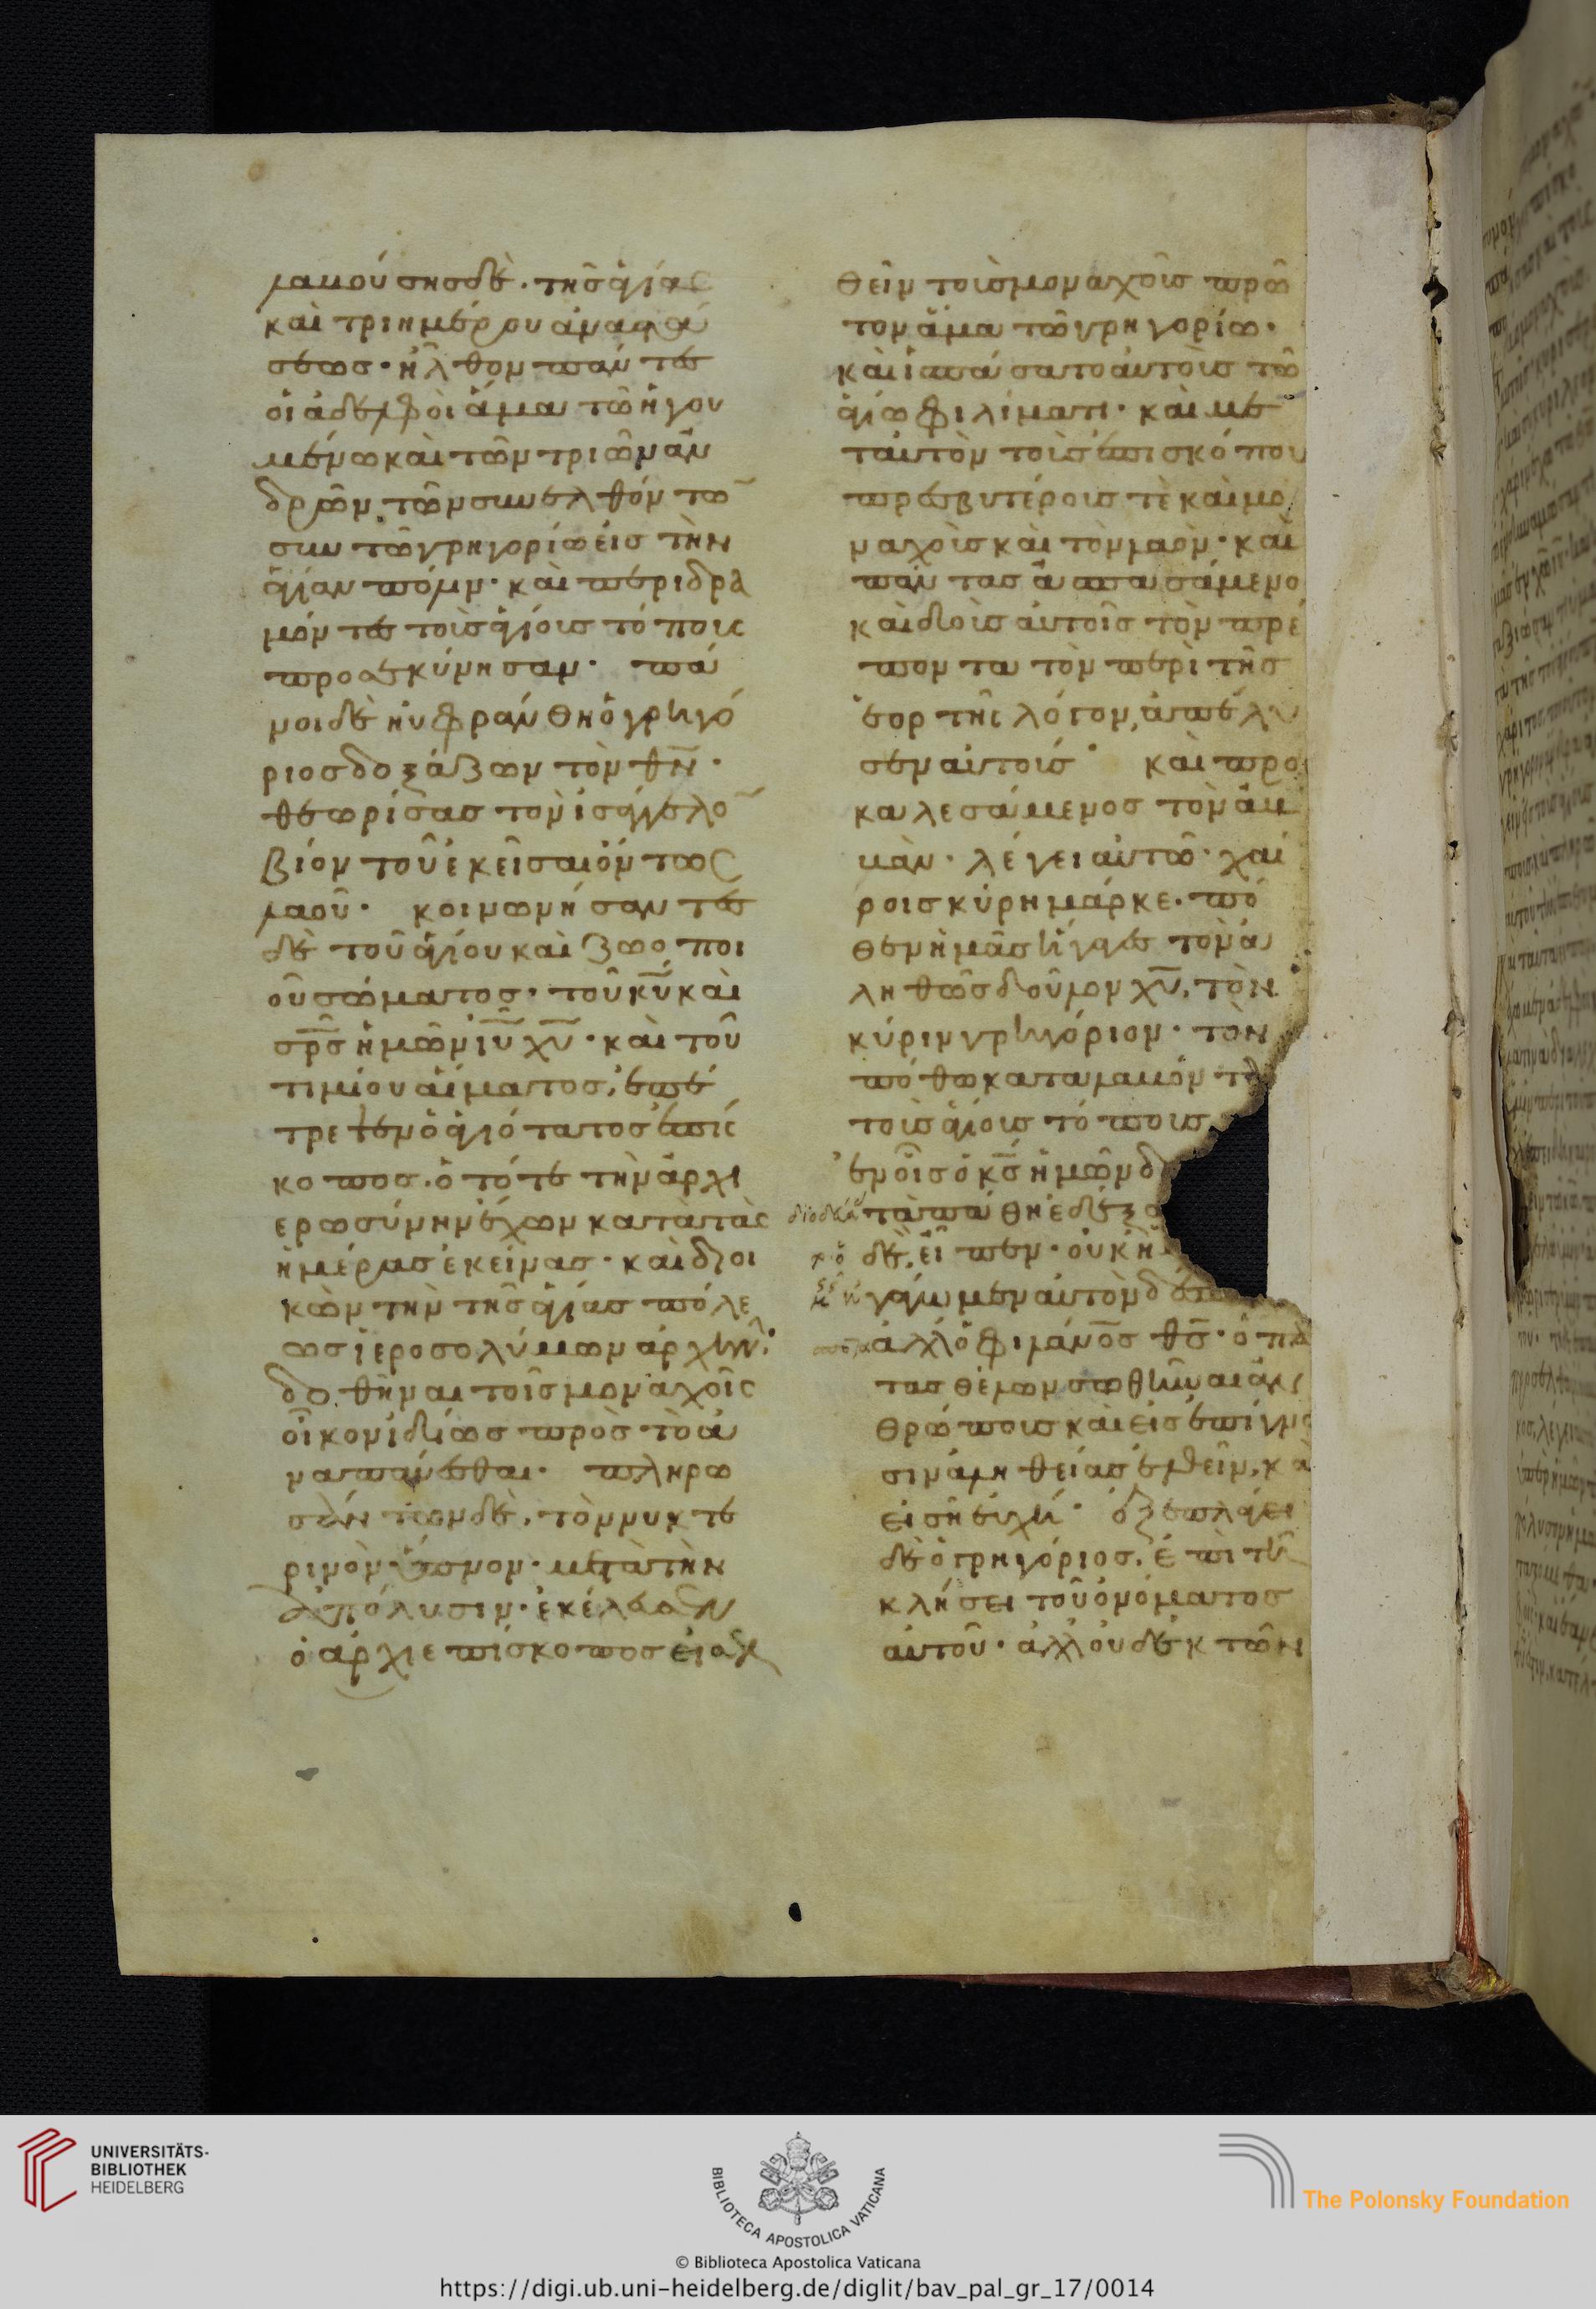 λαμπούσης δὲ· τῆς ἁγίας
καὶ τριημέρου ἀναστά
σεως· ἦλθον πάντες
οἱ ἀδελφοὶ ἅμα τῶ ἡγου
μένω καὶ τῶν τριῶν ἀν
δρῶν τῶν συνελθόντω̅
συν τῶ γρηγορίω εἰς τὴν
ἁγίαν πόλιν· καὶ περιδρα
μόντες τοῖς ἁγίοις τόποις
προσεκύνησαν· πά
νοι δὲ ηὐφράνθη ὁ γρηγό
ριος δοξάζων τὸν θ̅ν̅·
θεωρίσας τὸν ἰσάγγελο̅
βίον τοῦ ἐκεῖσαι ὄντως
λαοῦ· κοινωνήσαντες
δὲ τοῦ ἁγίου καὶ ζωοποι
οῦ σώματος· τοῦ κ̅υ̅ καὶ
σ̅ρ̅ς̅ ἡμῶν ἰ̅υ̅ χ̅υ̅· καὶ τοῦ
τιμίου αἵματος, ἐπέ
τρεψεν ὁ ἁγιότατος ἐπίσ
κοπος· ὁ τότε τὴν ἀρχι
ερωσύνην ἔχων κατὰ τὰς
ἡμέρας ἐκείνας· καὶ διοι
κῶν τὴν τῆς ἁγίας πόλε
ως ἱεροσολύμων ἀρχὴν·
δοθῆναι τοῖς μοναχοῖς
οἰκονιδίως πρὸς τὸ ἀ
ναπαύεσθαι· πληρω
σάντων δὲ, τὸν νυκτε
ρινὸν ὕπνον· μετὰ τὴν
ἀπόλυσιν· ἐκέλευσεν
ὁ ἀρχιεπίσκοπος εἰσελ
θεῖν τοῖς μοναχοῖς πρῶ
τον ἅμα τῶ γρηγορίω·
καὶ ἱσπάσατο αὐτοὶς τῶ
ἁγίω φιλίματι· καὶ με
ταυτὸν τοὶς ἐπισκόπου
πρεσβυτέροις τὲ καὶ μο
ναχοὶς καὶ τὸν λαὸν· καὶ
πάντας ἀσπασάμενο
καὶ διοὶς αὐτοῖς τὸν πρέ
πον τα τὸν περὶ τῆς
ἑορτῆς λόγον, ἀπέλυ
σεν αὐτοίς· καὶ προσ
καλεσάμενος τὸν ἀμ
μὰν· λέγει αὐτῶ· χαί
ροις κύρη μάρκε· πό
θεν ἡμᾶς ἤγαγες τὸν ἀ
ληθῶς δοῦλον χ̅υ̅, τὸν
κύριν γρηγόριον· τὸν
πόθω καταλαμόντα
τοὶς ἁγίοις τόποις
ἐν οἷς ὁ κ̅ς̅ ἡμῶν δ
τὰ πάθη ἐδέξα
δὲ, εἶπεν· οὐκ ἡ
γάγωμεν αὐτὸν δέσπο
ἀλλ' ὁ φιλάν̅ο̅ς θ̅ς̅· ὁ πάν
τας θέλων σωθῆναι ἀν
θρώποις καὶ εἰς ἐπίγνω
σιν ἀληθείας ἐλθεῖν, κα
εἰσήνεγκεν· ἐξεπλάγει
δὲ ὁ γρηγόριος, ἐπὶ τῆ
κλήσει τοῦ ὀνόματος
αὐτοῦ· ἀλλ' οὐδὲ κ τῶν
UNIVERSITÄTS-
BIBLIOTHEK
HEIDELBERG
BIBLIOTECA APOSTOLICA VATICANA
The Polonsky Foundation
© Biblioteca Apostolica Vaticana
https://digi.ub.uni-heidelberg.de/diglit/bav_pal_gr_17/0014